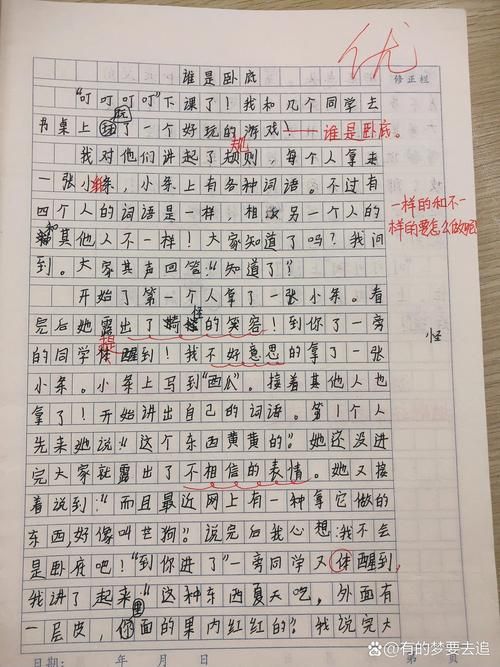 优
谁是卧底
修正栏
“叮叮叮叮”下课了！我和几个同学去
玩
书桌上了一个好玩的游戏！——谁是卧底。
规
我对他们讲起了规则，每个人拿来
一张小纸条，小条上有各种词语。不过有
四个人的词语是一样，相反另一个人的
和其他人不一样！大家知道了吗？我问
一样的和不一
样的要怎么做呢
到。大家其声回答：“知道了！”
开始了第一个人拿了一张小条。看
怪
完后她露出了的笑容！到你了一旁
怪
提
的同学醒到！我不好意思的拿了一张
小条。小条上写到“西瓜”。接着其他人也
拿了！开始讲出自己的词语。第1个人
先来她说：“这个东西黄黄的”。她还没进
完大家就露出了不相信的表情。她又接
着说到：“而且最近网上有一种拿它做的
东西，好像叫芒狗”。说完后我心想：我不会
是卧底吧！“到你进了”一旁同学又体醒到，
我讲了起来：“这种东西夏天吃，外面有
里
一层皮，面的果肉红红的！”我说完大
日期： 年 月 日
第 页
@有的梦要去追